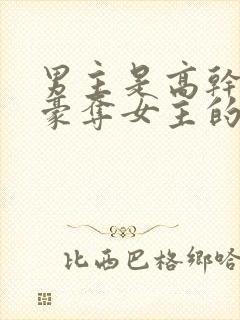 男主是高幹
豪奪女主的
比西巴格鄉哈